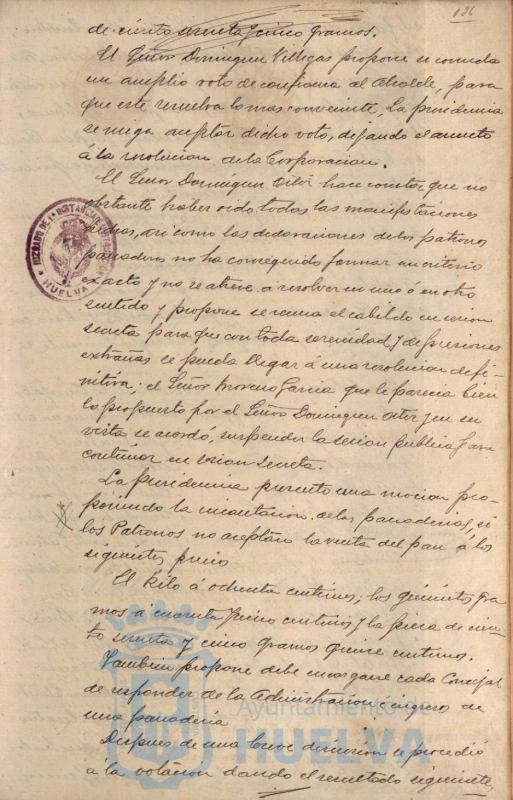 136
de ciento sesenta y cinco gramos.
El Señor Dominguez Villegas propone se conceda
un amplio voto de confianza al Alcalde, para
que este resuelva lo mas conveniente, La presidencia
se niega aceptar dicho voto, dejando el asunto
á la resolucion de la Corporacion.
El Señor Dominguez Ortiz hace constar que no
obstante haber oido todas las manifestaciones
hechas, asi como las declaraciones de los patronos
panaderos no ha conseguido formar un criterio
exacto y no se atreve a resolver en uno ó en otro
sentido y propone se reuna el cabildo en sesion
secreta para que con toda serenidad, y de presiones
extrañas se pueda llegar á una resolucion defi-
nitiva; el Señor Moreno Garcia que le parecia bien
lo propuesto por el Señor Dominguez Ortiz y en su
vista se acordó, suspender la sesion publica para
continuar en sesion secreta.
La presidencia presento una mocion pro-
poniendo la incautacion de las panaderias, si
los Patronos no aceptan la venta del pan á los
siguientes precios
El kilo á ochenta centimos; los quinientos gra-
mos á cuarenta y cinco centimos y la pieza de cien-
to sesenta y cinco gramos quince centimos.
Tambien propone debe encargarse cada Concejal
de responder de la Administracion é ingreso de
una panaderia
Despues de una breve discusion se procedió
á la votacion dando el resultado siguiente,
JUZGADO DE 1ª INSTANCIA
HUELVA
Ayuntamiento de
HUELVA